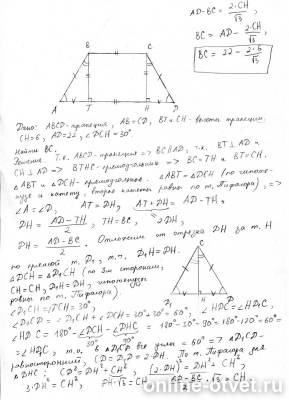 AD-BC = 2·CH/√3 ;
BC = AD - 2·CH/√3 ;
BC = 22 - 2·6/√3
B C
A T H D
Дано: ABCD-трапеция, AB=CD, BT и CH-высоты трапеции.
CH=6, AD=22, ∠DCH=30°
Найти BC.
Решение. Т.к. ABCD-трапеция => BC∥AD, т.к. BT⊥AD и
CH⊥AD => BTHC-прямоугольник => BC=TH и BT=CH.
△ABT и △DCH-прямоугольные. △ABT=△DCH (по гипоте-
нузе и катету, вторые катеты равны по т. Пифагора), =>
∠A=∠D, AT=DH, AT+DH = AD-TH,
DH = AD-TH/2 , TH=BC,
DH = AD-BC/2 . Отложим от отрезка DH за т. H
по прямой т. D₁, т.ч. D₁H=DH.
△DCH=△D₁CH (по 3м сторонам,
CH=CH, D₁H=DH, гипотенузы
равны по т. Пифагора)
C
D₁ H D
∠D₁CH=∠DCH=30°,
∠D₁CD=∠D₁CH+∠DCH=30°+30°=60°, ∠HDC=∠HD₁C,
∠HDC=180°-∠DCH-∠DHC = 180°-30°-90°=180°-120°=60°=
30° 90°
=∠HD₁C, т.о. в △D₁CD все углы =60° => △D₁CD-
равносторонний, CD=D₁D=2·DH. По т. Пифагора для
△DHC: CD²=DH²+CH², (2·DH)²=DH²+CH²,
3·DH²=CH², DH·√3=CH, AD-BC/2·√3=CH,
online-otvet.ru